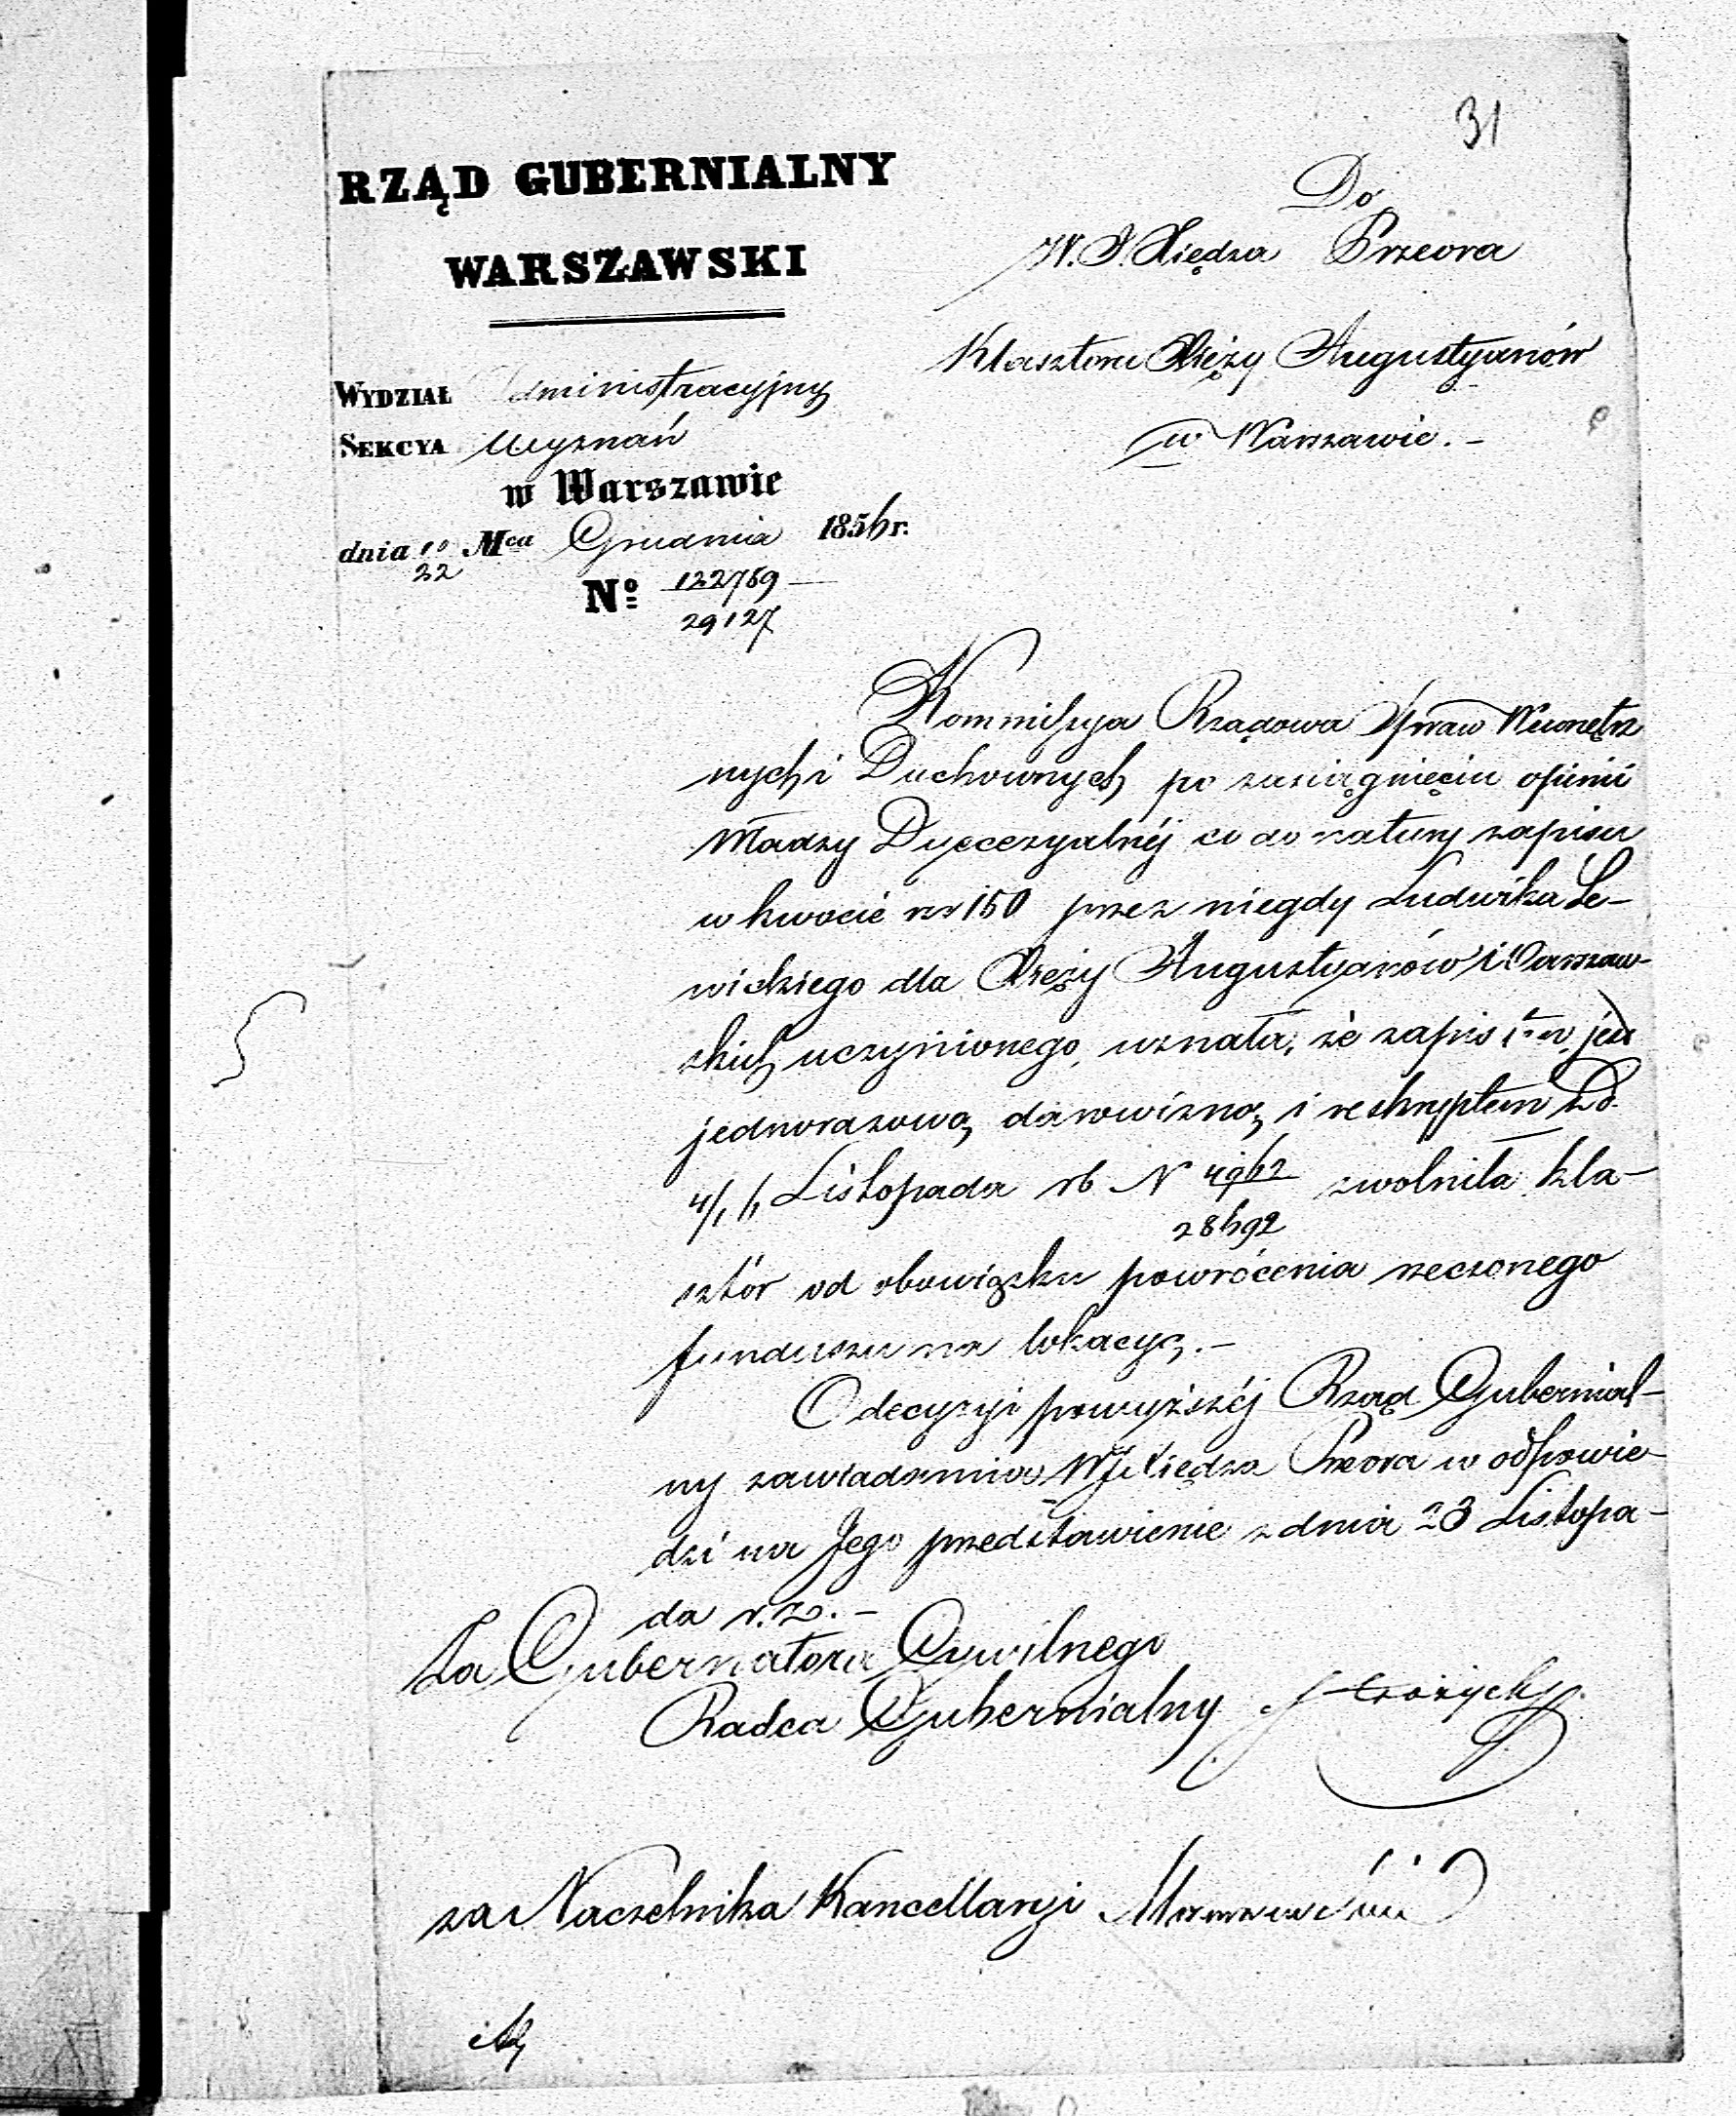 31
RZĄD GUBERNIALNY
WARSZAWSKI
Do
W. J. Xiędza Przeora
Klasztoru Xięży Augustyanów
w Warszawie. –
WYDZIAŁ Administracyjny
SEKCYA Wyznań
w Warszawie
dnia 10/22 Mca Grudnia 1856 r.
No 122769
29127
Kommissya Rządowa Spraw Wewnętrz
nych i Duchownych po zasiągnięciu opinii
Władzy Dyecezyalnéj co do natury zapisu
w kwocie rsr 150 przez niegdy Ludwika Le-
wickiego dla Xięży Augustyanów Warszaw-
skich uczynionego, uznała, że zapis ten jest
jednorazową darowizną i reskryptem z d.
4/ Listopada rb N 4962 zwolniła kla-
28692
sztór od obowiązku powrócenia rzeczonego
funduszu na lokacyę. –
O decyzyi powyższéj Rząd Gubernial-
ny zawiadamia WJXiędza Przeora w odpowie-
dzi na Jego przedstawienie z dnia 23 Listopa-
da r. z. –
Za Gubernatora Cywilnego
Radca Gubernialny
za Naczelnika Kancellaryi